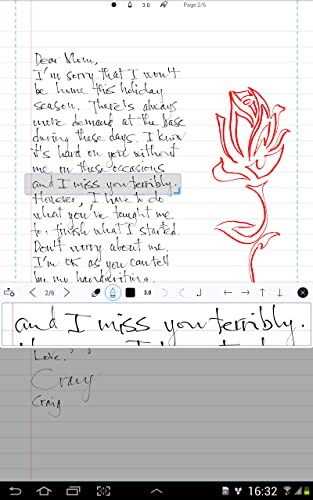 3.0
Page 2/6
Dear Mom,
I'm sorry that I won't
be home this holiday
season. There's always
more demand at the base
during these days. I know
it's hard on you without
me on these occasions
and I miss you terribly.
However, I have to do
what you've taught me
to: finish what I started.
Don't worry about me.
I'm OK as you can tell
by my handwriting.
2/6
3.0
and I miss you terribly.
Love,
Craig
Craig
16:32